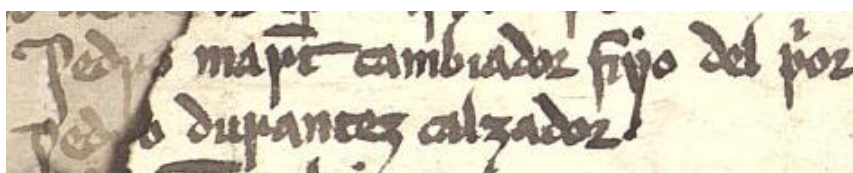 Pedro mart cambiador fijo del por
Pedro durantez calzador